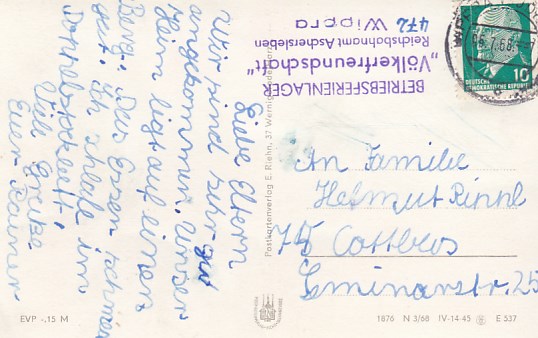 Liebe Eltern
Wir sind sehr gut
angekommen. Unser
Heim liegt auf einen
Berg. Das Essen schmeckt
gut. Ich schlafe im
Doppelstockbett.
Viele Grüße
Euer Rainer
BETRIEBSFERIENLAGER
„Völkerfreundschaft"
Reichsbahnamt Aschersleben
472 Wippra
DEUTSCHE
DEMOKRATISCHE REPUBLIK
10
7.68
An Familie
Helmut
75 Cottbus
Seminarstr. 25
Postkartenverlag E. Riehn, 37 Wernigerode
EVP -,15 M
1876 N 3/68 IV-14-45 E 537